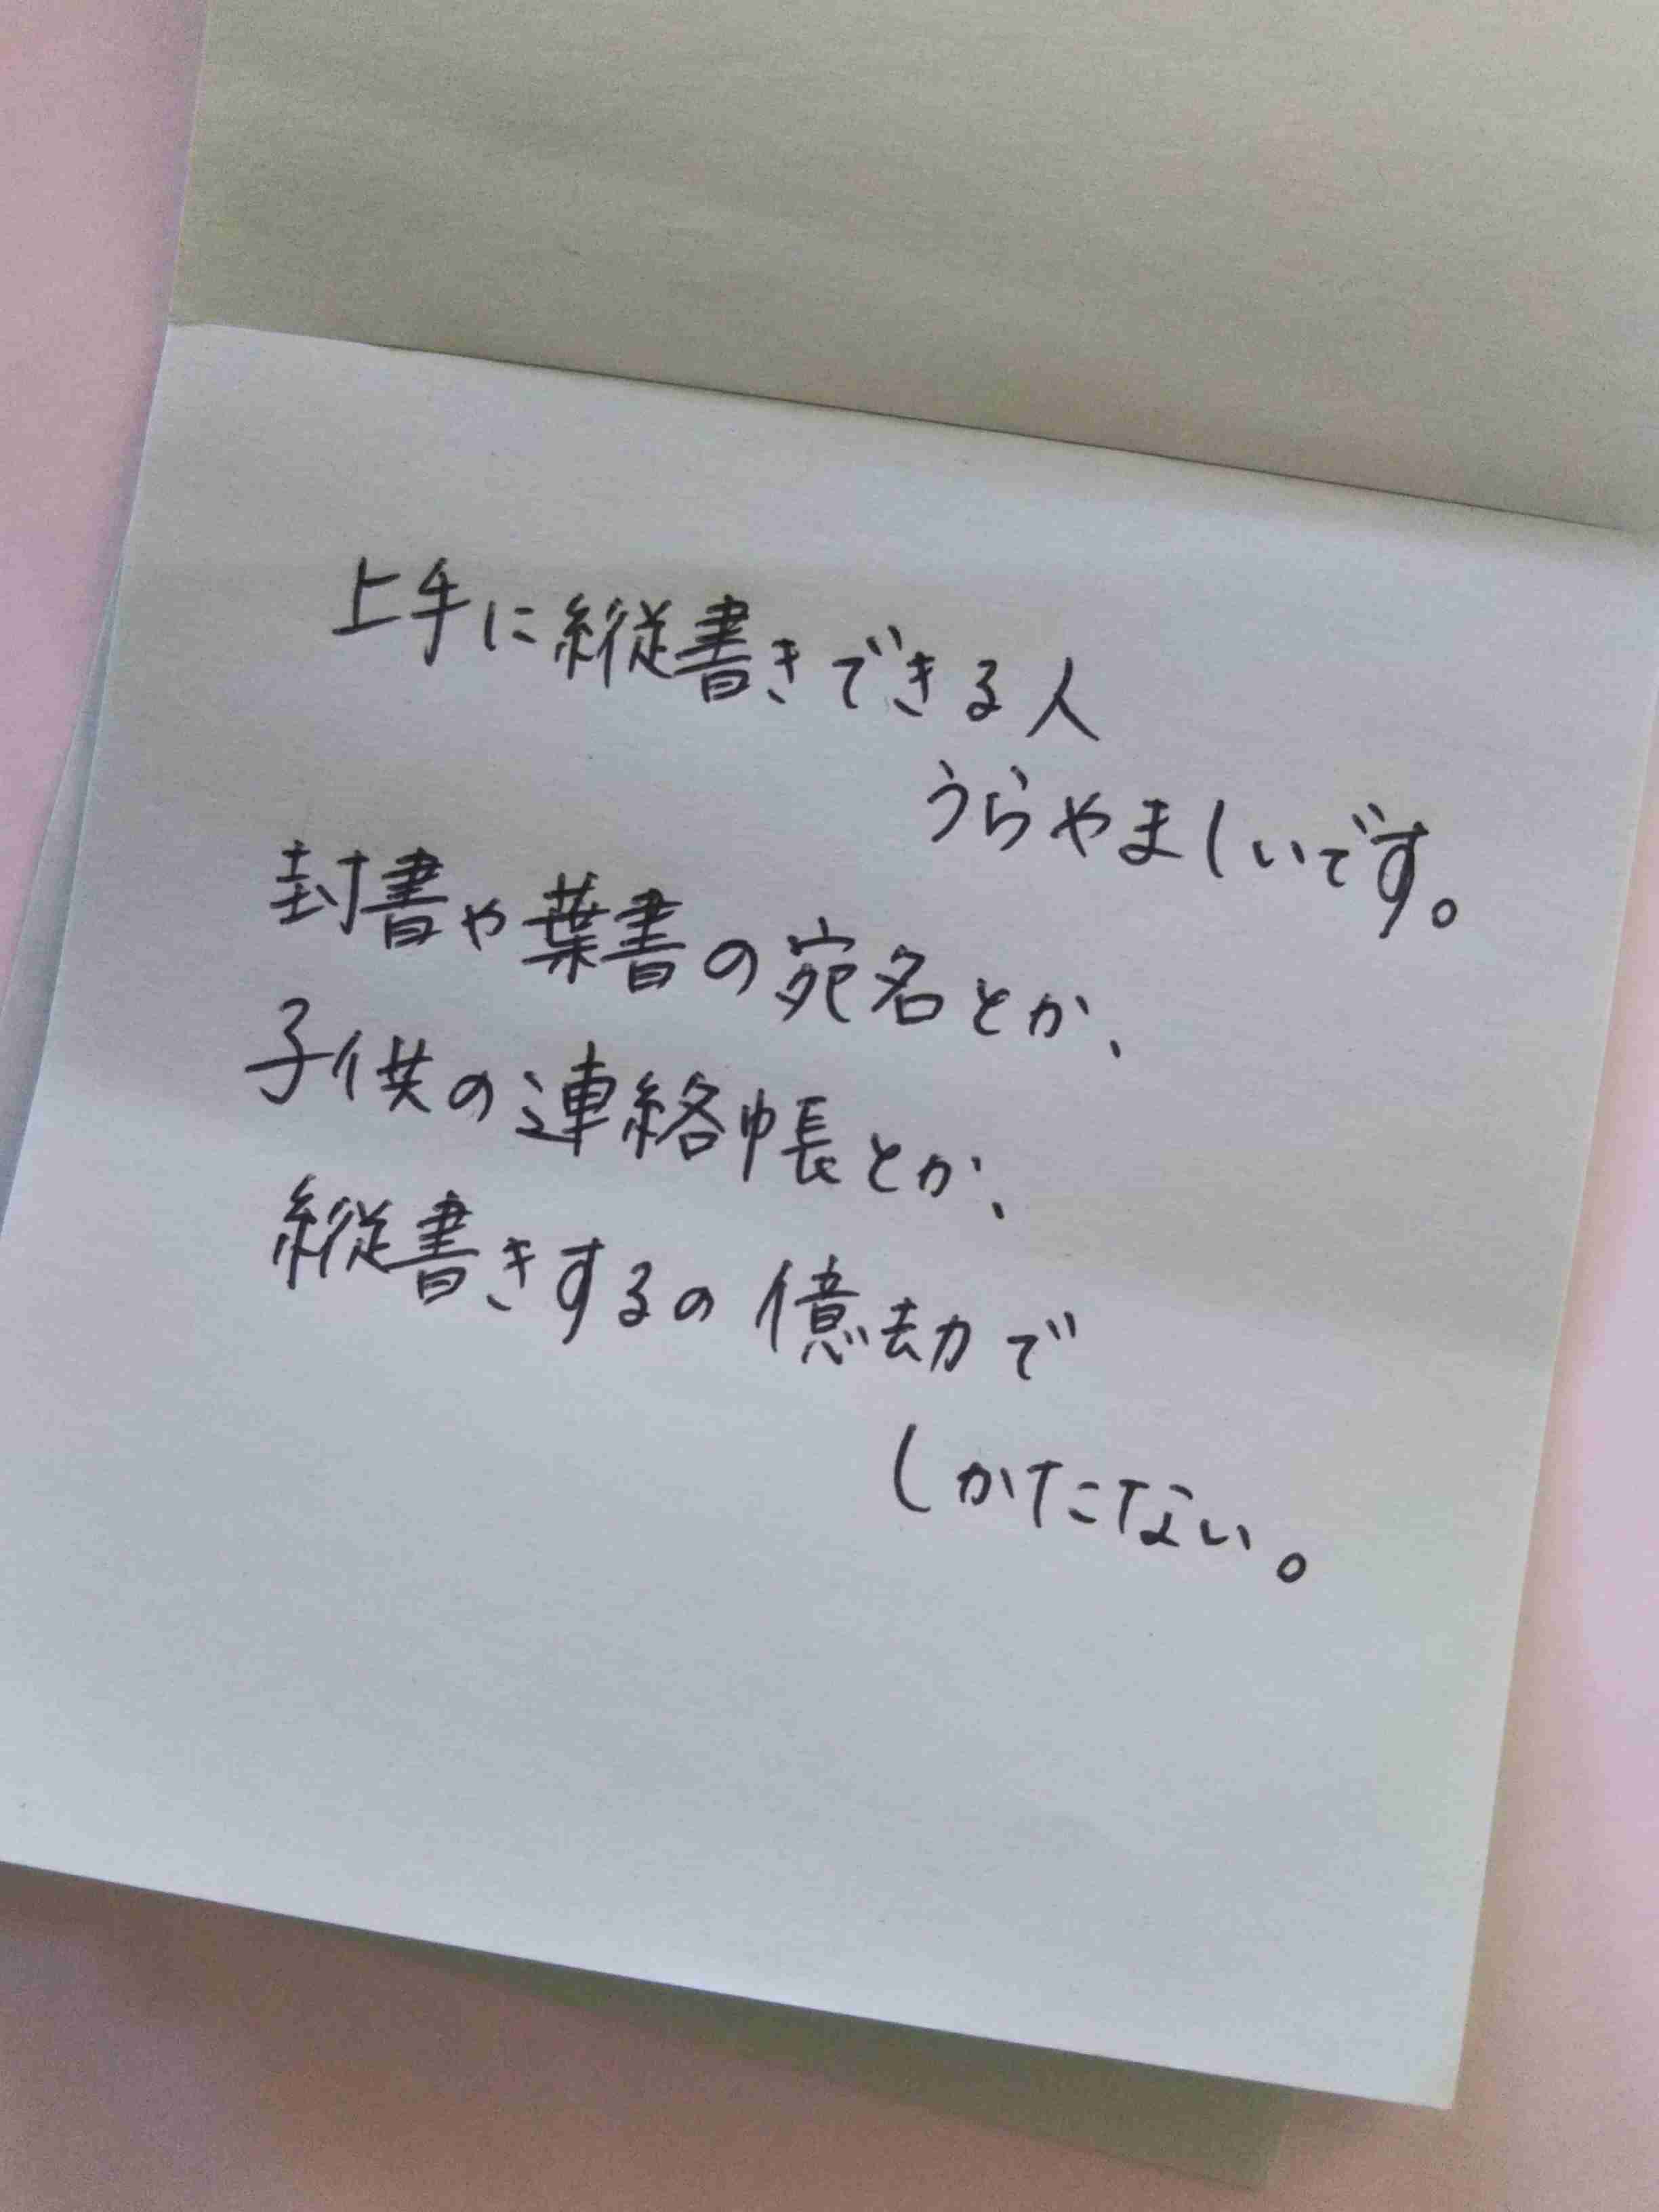 上手に縦書きできる人
うらやましいです。
封書や葉書の宛名とか、
子供の連絡帳とか、
縦書きするの億劫で
しかたない。